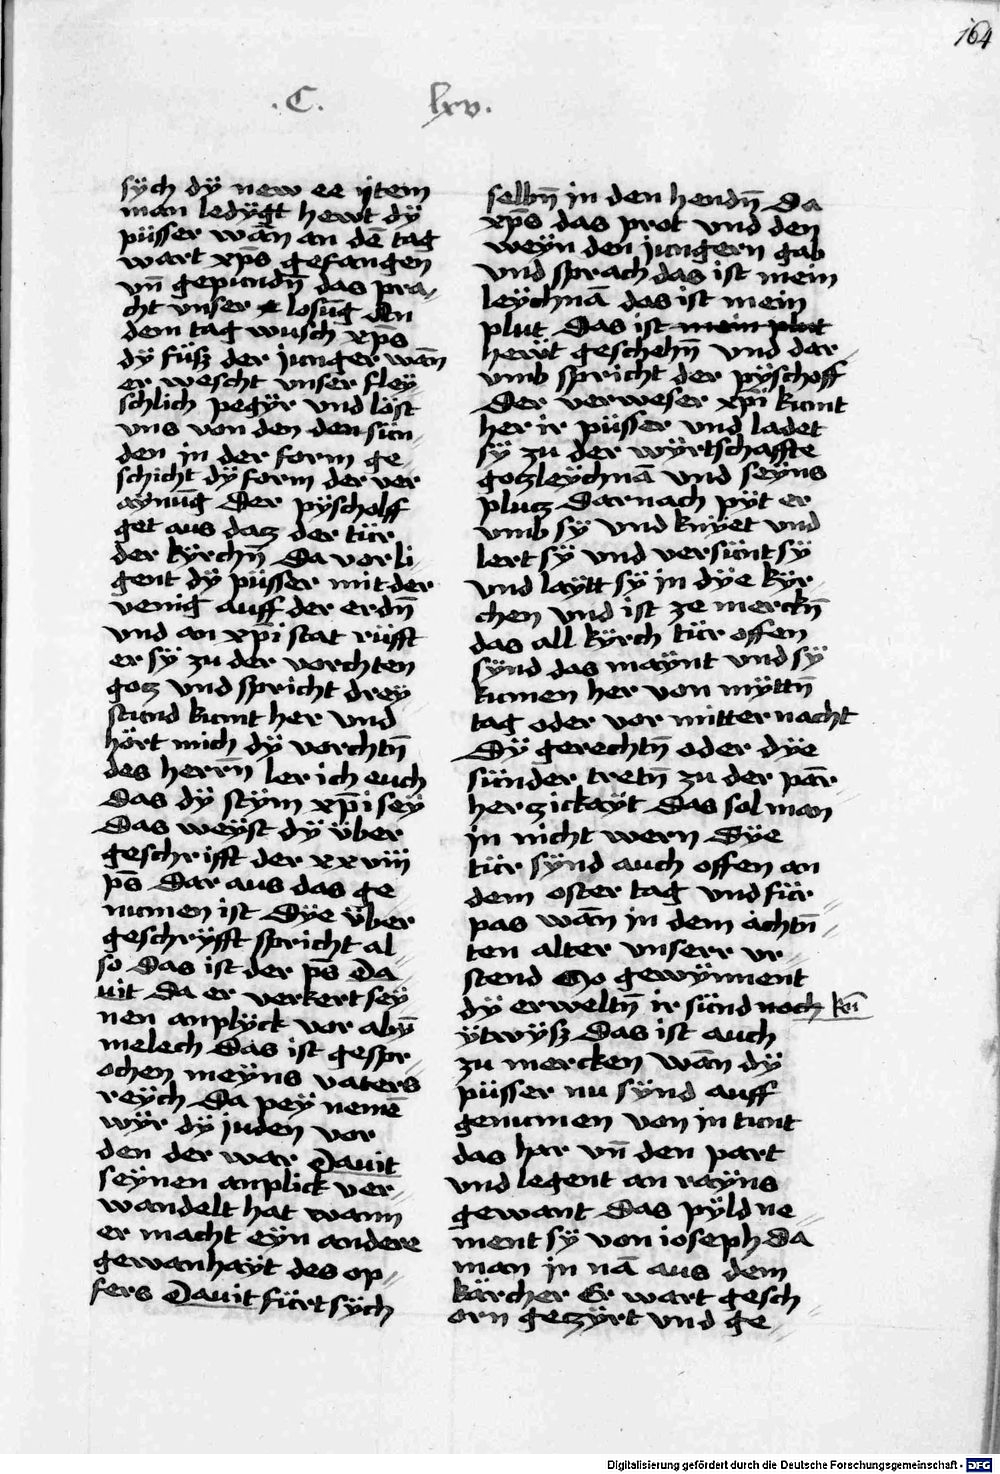 164
.C. lxv.
sÿch dÿ new ee ijtem
man ledÿgt hewt dÿ
püsser wān an dē tag
wart xp̄s gefangen̄
vn̄ gepundn̄ das pra-
cht unser losūg An
dem tag wusch xp̄s
dÿ füsz der junger wān
er wescht unser fleÿ-
schlich pegÿr und löst
uns von den den sün-
den in der form ge
schicht dÿ form der ver
aynūg Der pÿscholff
get aus datz der tür
der kÿrchn̄ Da vor li-
gent dÿ püsser mit der
venig auff der erdn̄
und an xp̄i stat rüfft
er sÿ zu der vorchten
gotz und spricht dreÿ
stund kumt her und
hört mich dÿ vorchtn̄
des herrn̄ ler ich euch
Das dÿ stÿm xp̄i seÿ
Das weÿst dÿ über
geschrifft der xxviii
ps̄ Dar aus das ge
numen ist Dÿe über
geschrÿfft spricht al
so Das ist der ps̄ Da
uit Da er verkert seÿ
nen anplÿck vor abÿ
melech Das ist gespr-
ochen meÿns vaters
reÿch Da peÿ nemē
wÿr dÿ juden vor
den der war Dauit
seÿnen anplick ver-
wandelt hat wann
er macht eÿn andere
gewanhaÿt des op-
fers Dauit fürt sÿch
selbn̄ in den hendn̄ Da
xp̄s das prot und den
weÿn den jungern gab
und sprach das ist mein
leÿchnā das ist mein
plut Das ist mein plut
herÿt geschehn̄ und dar-
umb spricht der pÿschoff
Der verweser xp̄i kumt
her ir püsser und ladet
sÿ zu der wÿrtschaffte
gotzleÿchnā und seÿns
plutz Darnach pÿt er
umb sÿ und knÿet und
lert sÿ und versünt sÿ
und laÿtt sÿ in dÿe kÿr-
chen und ist ze merckn̄
das all kÿrch tür offen
sÿnd das maÿnt und sÿ
kumen her von mÿttn̄
tag oder vor mitternacht
Dÿ gerechtn̄ oder dÿe
sünder tretn̄ zu der par̄-
herzickaÿt Das sol man
in nicht wern Dÿe
tür sÿnd auch offen an
dem oster tag und für-
pas wān in dem achtn̄-
ten alter unserr ur-
stend So gewÿnnent
dÿ erweltn̄ ir sünd noch kn̄
ÿtwÿsz Das ist auch
zu mercken wān dÿ
püsser nu sÿnd auff
genumen von in tunt
das har vn̄ den part
und legent an raÿns
gewant Das pÿld ne-
ment sÿ von ioseph Da
man in nā aus dem
kärcher Er wart gesch-
orn getzÿrt und ge-
Digitalisierung gefördert durch die Deutsche Forschungsgemeinschaft - DFG